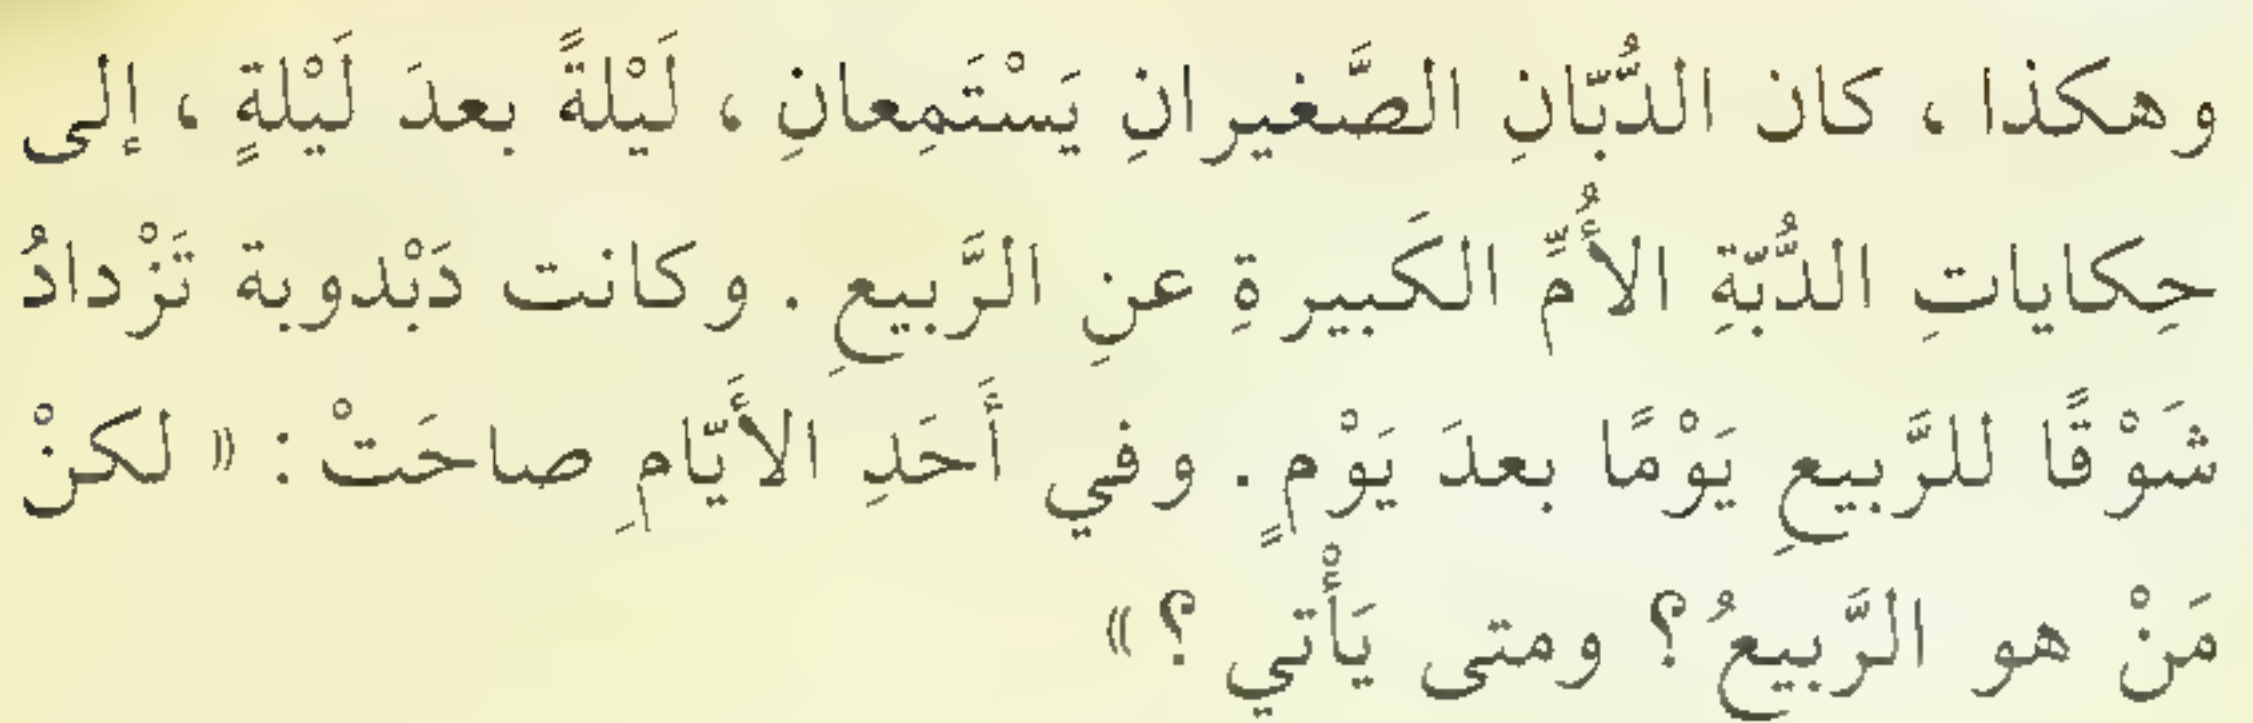 وهكذا ، كان الدُّبّانِ الصَّغيرانِ يَسْتَمِعانِ ، لَيْلةً بعدَ لَيْلةٍ ، إلى
حِكاياتِ الدُّبّةِ الأُمِّ الكَبيرةِ عنِ الرَّبيعِ . وكانت دَبْدوبة تَزْدادُ
شَوْقًا للرَّبيعِ يَوْمًا بعدَ يَوْمٍ . وفي أَحَدِ الأَيّامِ صاحَتْ : « لكنْ
مَنْ هو الرَّبيعُ ؟ ومتى يَأْتي ؟ »